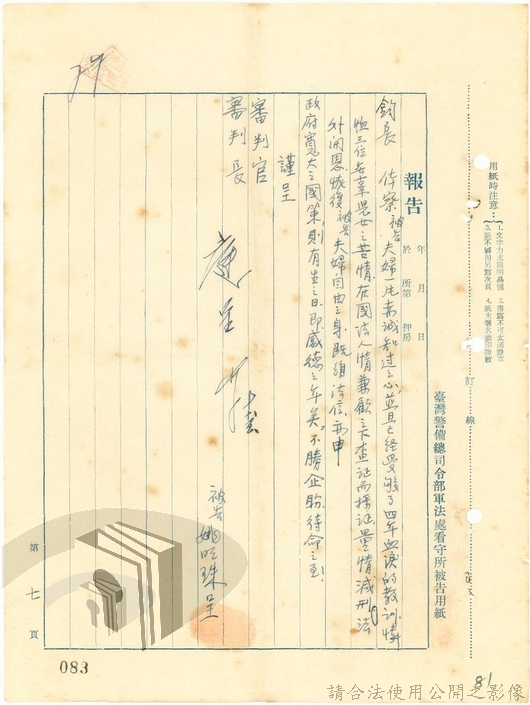 用紙時注意：
1.文字力求簡明易懂
2.書寫不可太過潦草
3.紙不够用另寫次頁
4.紙末簽名捺印指紋
訂線
臺灣警備總司令部軍法處看守所被告用紙
報告
年 月 日
於 所第 押房
鈞長 体察被告夫婦一片赤誠知过之心並且已經受够了四年血淚的教訓憐
恤三位無辜兒女之苦情在國法人情兼顧之下查証而採証量情減刑法
外開恩恢復被告夫婦自由之身既維法信亦申
政府寬大之國策則有生之日即感德之年矣。不勝企盼待命之至
謹呈
審判官
審判長
被告 姚明珠呈
第七頁
083
81
請合法使用公開之影像